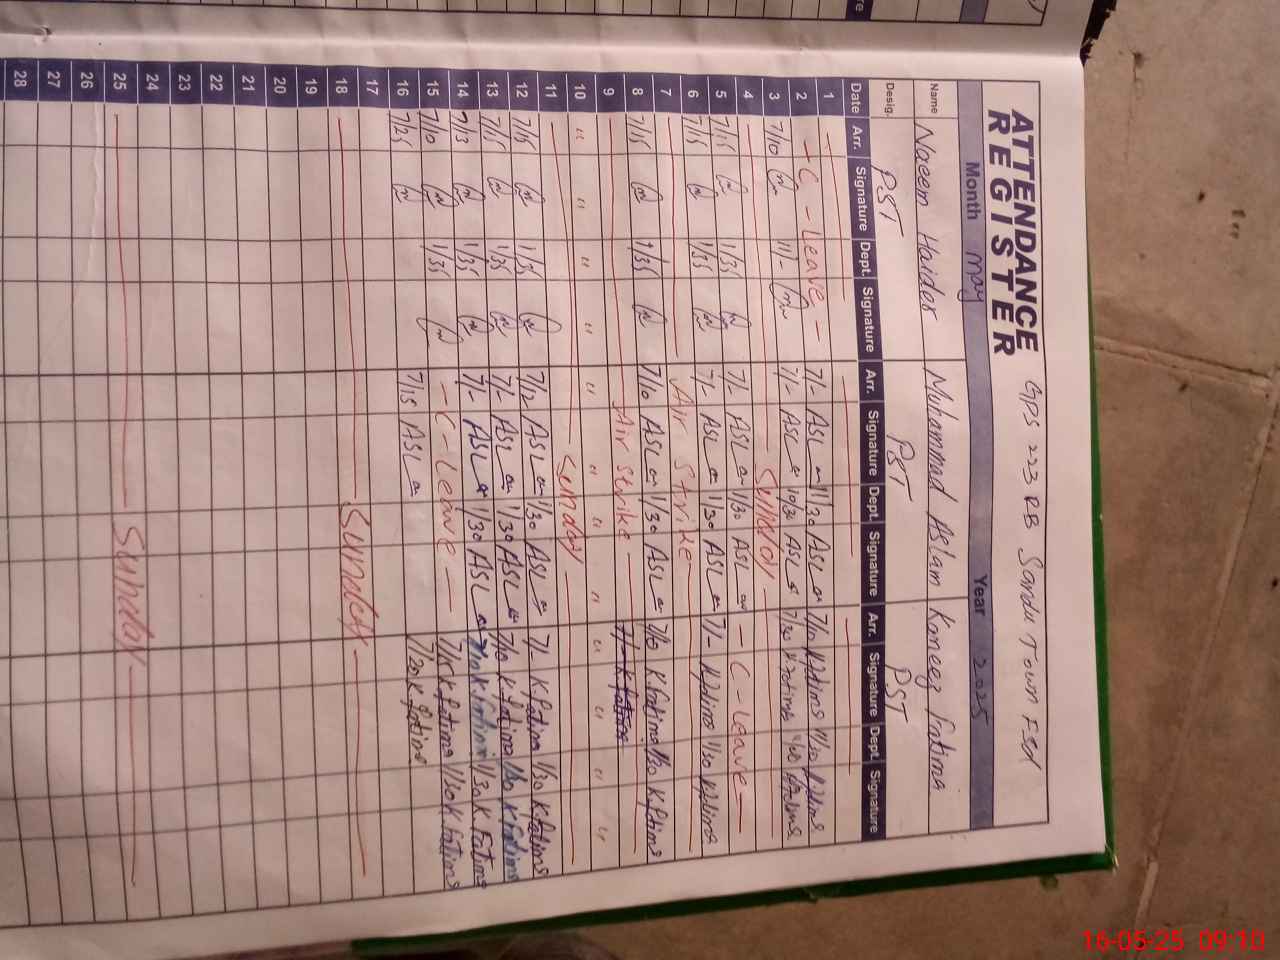 ATTENDANCE REGISTER
GPS 223 RB Sandu Town Fsd
Month May Year 2025
Name Naeem Haider Muhammad Aslam Komeez Fatima
Desig. PST PST PST
Date Arr. Signature Dept. Signature Arr. Signature Dept. Signature Arr. Signature Dept. Signature
1
2 - C - Leave - 7/- ASL 11/30 ASL 7/10 K Fatima 11/30 K Fatima
3 7/10 11/- 7/- ASL 10/30 ASL 7/30 K Fatima
4 Sunday
5 7/15 1/35 7/- ASL 1/30 ASL - C - Leave -
6 7/15 1/35 7/- ASL 1/30 ASL 7/- K Fatima 1/30 K Fatima
7 Air Strike
8 7/15 1/35 7/10 ASL 1/30 ASL 7/10 K Fatima 1/30 K Fatima
9 Air Strike 7/- K Fatima
10 " " " " " " " " " " " "
11 Sunday
12 7/15 1/35 7/2 ASL 1/30 ASL 7/- K Fatima 1/30 K Fatima
13 7/15 1/35 7/- ASL 1/30 ASL 7/10 K Fatima 1/30 K Fatima
14 7/13 1/35 7/- ASL 1/30 ASL 7/10 K Fatima 1/30 K. Fatima
15 7/10 1/35 - C - Leave - 7/15 K Fatima 1/10 K Fatima
16 7/25 7/15 ASL 7/20 K Fatima
17
18 Sunday
19
20
21
22
23
24
25 Sunday
26
27
28
16-05-25 09:10